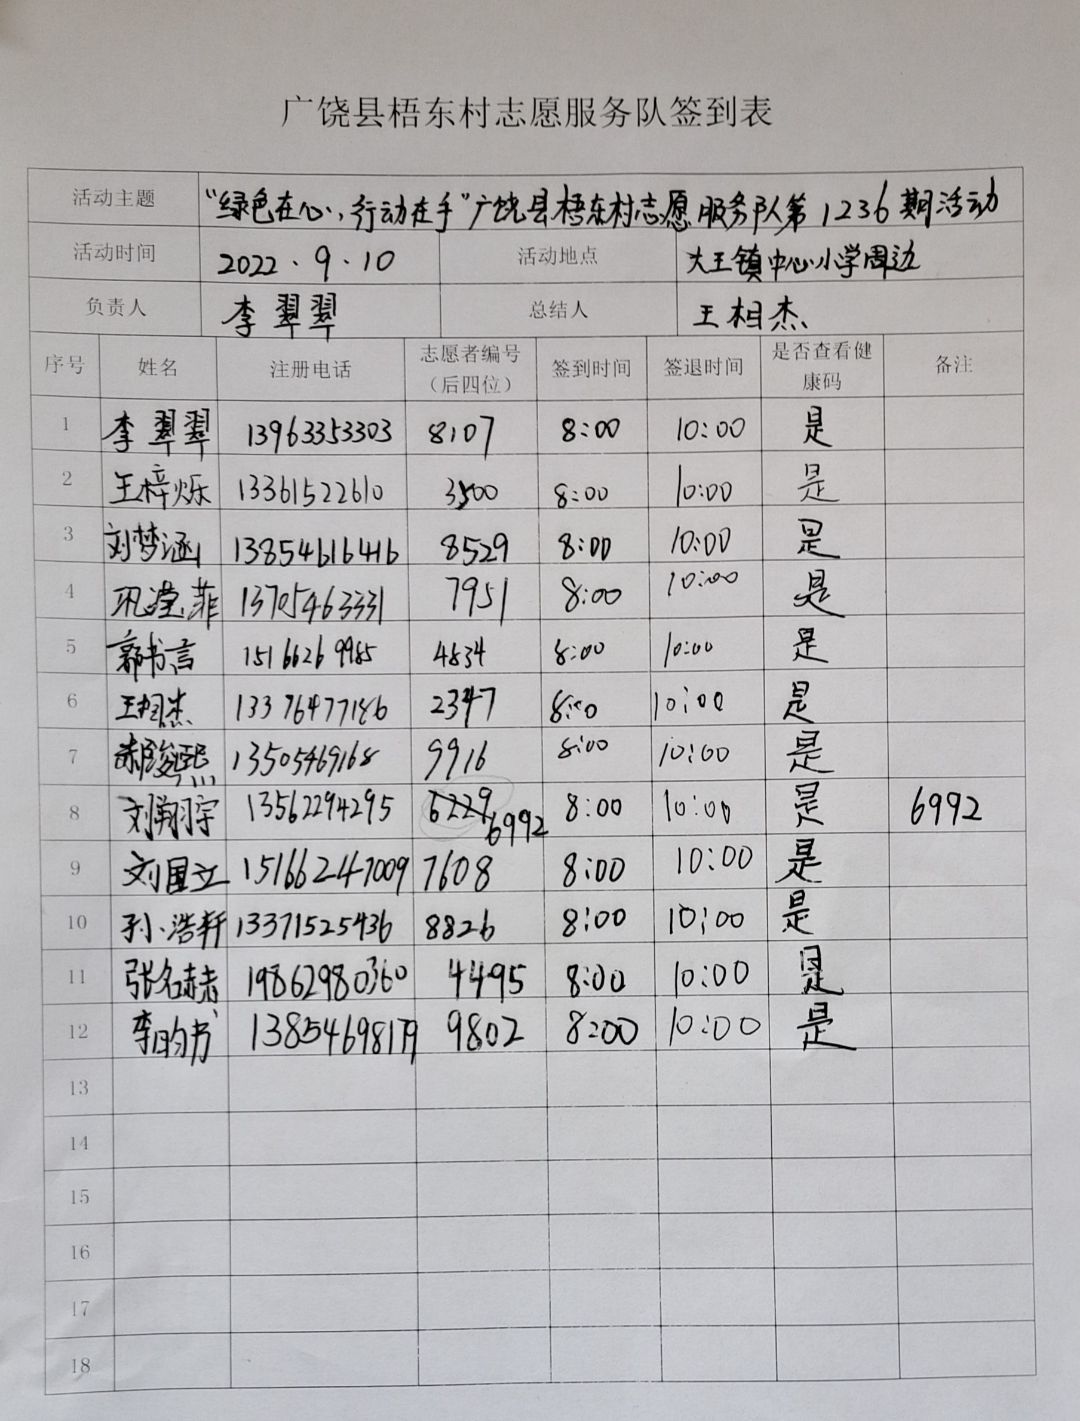 广饶县梧东村志愿服务队签到表
活动主题 “绿色在心,行动在手”广饶县梧东村志愿服务队第1236期活动
活动时间 2022.9.10 活动地点 大王镇中心小学周边
负责人 李翠翠 总结人 王相杰
序号 姓名 注册电话 志愿者编号（后四位） 签到时间 签退时间 是否查看健康码 备注
1 李翠翠 13963353303 8107 8:00 10:00 是
2 王梓烁 13361522610 3500 8:00 10:00 是
3 刘梦涵 13854616416 8529 8:00 10:00 是
4 巩滢菲 13705463331 7951 8:00 10:00 是
5 郭书言 15166269985 4834 8:00 10:00 是
6 王相杰 13376477186 2347 8:00 10:00 是
7 郝骏熙 13505469168 9916 8:00 10:00 是
8 刘翔宇 13562294295 6229 6992 8:00 10:00 是 6992
9 刘国立 15166247009 7608 8:00 10:00 是
10 孙浩轩 13371525436 8826 8:00 10:00 是
11 张名赫 19862980360 4495 8:00 10:00 是
12 李昀书 9802 8:00 10:00 是
13
14
15
16
17
18